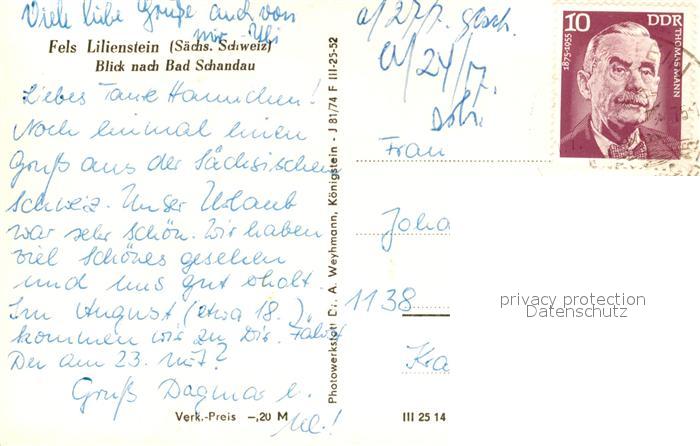 Viele liebe Grüße auch von
mir Uli
Fels Lilienstein (Sächs. Schweiz)
Blick nach Bad Schandau
Liebes Tante Hannchen!
Noch einmal einen
Gruß aus der Sächsischen
Schweiz. Unser Urlaub
war sehr schön. Wir haben
viel Schönes gesehen
und uns gut erholt.
Im August (etwa 18.)
kommen wir zu Dir. Fährst
Du am 23. mit?
Gruß Dagmar u.
Uli!
Verk.-Preis —,20 M
Photowerkstatt Dr. A. Weyhmann, Königstein - J 81/74 F III-25-52
a/27/7. gesch.
a/24/7.
10
DDR
THOMAS MANN
1875-1955
Frau
Joha
1138
Kra
III 25 14
privacy protection
Datenschutz